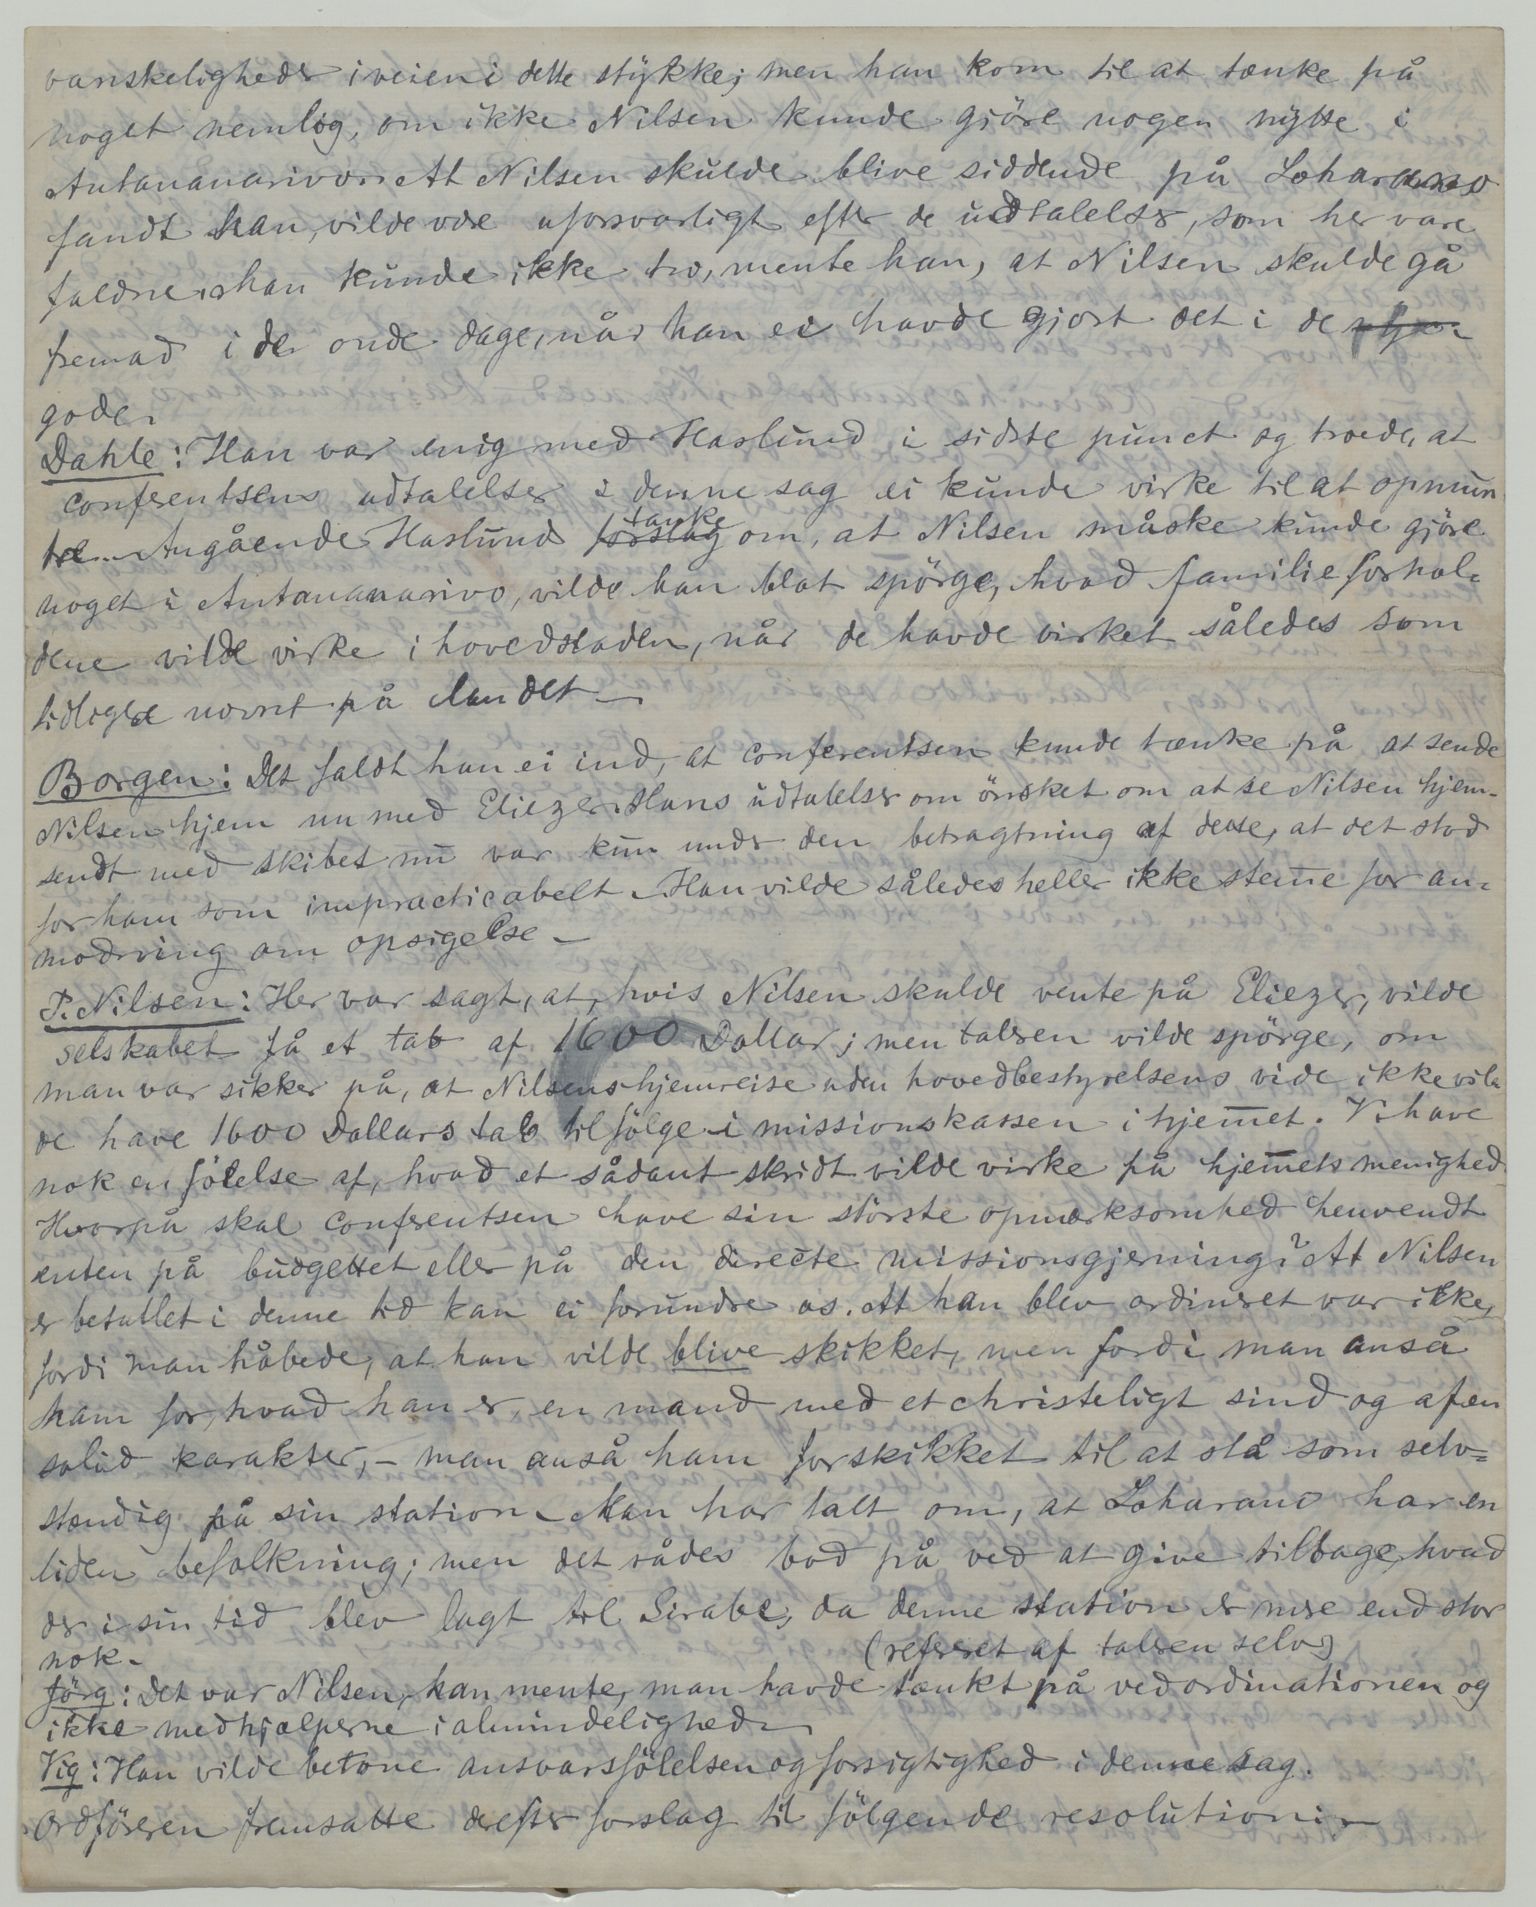 vanskeligheder i veien i dette stykke; men han kom til at tænke på
noget nemlig, om ikke Nilsen kunde gjöre nogen nytte i
Antananarivo. At Nilsen skulde blive siddende på Loharano
fandt han, vilde være uforsvarligt efter de udtalelser, som her vare
faldne; han kunde ikke tro, mente han, at Nilsen skulde gå
fremad i de onde dage, når han ei havde gjort det i de
gode.
Dahle: Han var enig med Haslund i sidste punct og troede, at
conferentsens udtalelser i denne sag ei kunde virke til at opmun
tre. Angående Haslund forslag tanke om, at Nilsen måske kunde gjöre
noget i Antananarivo, vilde han blot spörge, hvad familieforhol-
dene vilde virke i hovedstaden, når de havde virket således som
tidligere nævnt på landet —
Borgen: Det faldt han ei ind, at conferentsen kunde tænke på at sende
Nilsen hjem nu med Eliezer. Hans udtalelser om önsket om at se Nilsen hjem-
sendt med skibet nu var kun under den betragtning af dette, at det stod
for ham som impracticabelt. Han vilde således heller ikke stem̅e for an-
modning om opsigelse —
P. Nilsen: Her var sagt, at, hvis Nilsen skulde vente på Eliezer, vilde
selskabet få et tab af 1600 Dollar; men taleren vilde spörge, om
man var sikker på, at Nilsens hjemreise uden hovedbestyrelsens vide ikke vil-
de have 1600 Dollars tab til fölge i missionskassen i hjem̅et. Vi have
nok en fölelse af, hvad et sådant skridt vilde virke på hjem̅ets menighed
Hvorpå skal conferentsen have sin störste opmærksomhed henvendt
enten på budgettet eller på den directe missionsgjerning? At Nilsen
er befattet i denne tid kan ei forundre os. At han blev ordineret var ikke,
fordi man håbede, at han vilde blive skikket, men fordi man anså
ham for, hvad han er, en mand med et christeligt sind og af en
solid karakter, – man anså ham for skikket til at stå som selv=
stændig på sin station. Man har talt om, at Loharano har en
liden befolkning; men det rådes bod på ved at give tilbage, hvad
der i sin tid blev lagt til Sirabe, da denne station er mere end stor
nok. (refereret af taleren selv)
Jörg: Det var Nilsen, han mente, man havde tænkt på ved ordinationen og
ikke medhjælperne i almindelighed.
Vig: Han vilde betone ansvarsfölelsen og forsigtighed i denne sag.
Ordföreren fremsatte derefter forslag til fölgende resolution: –